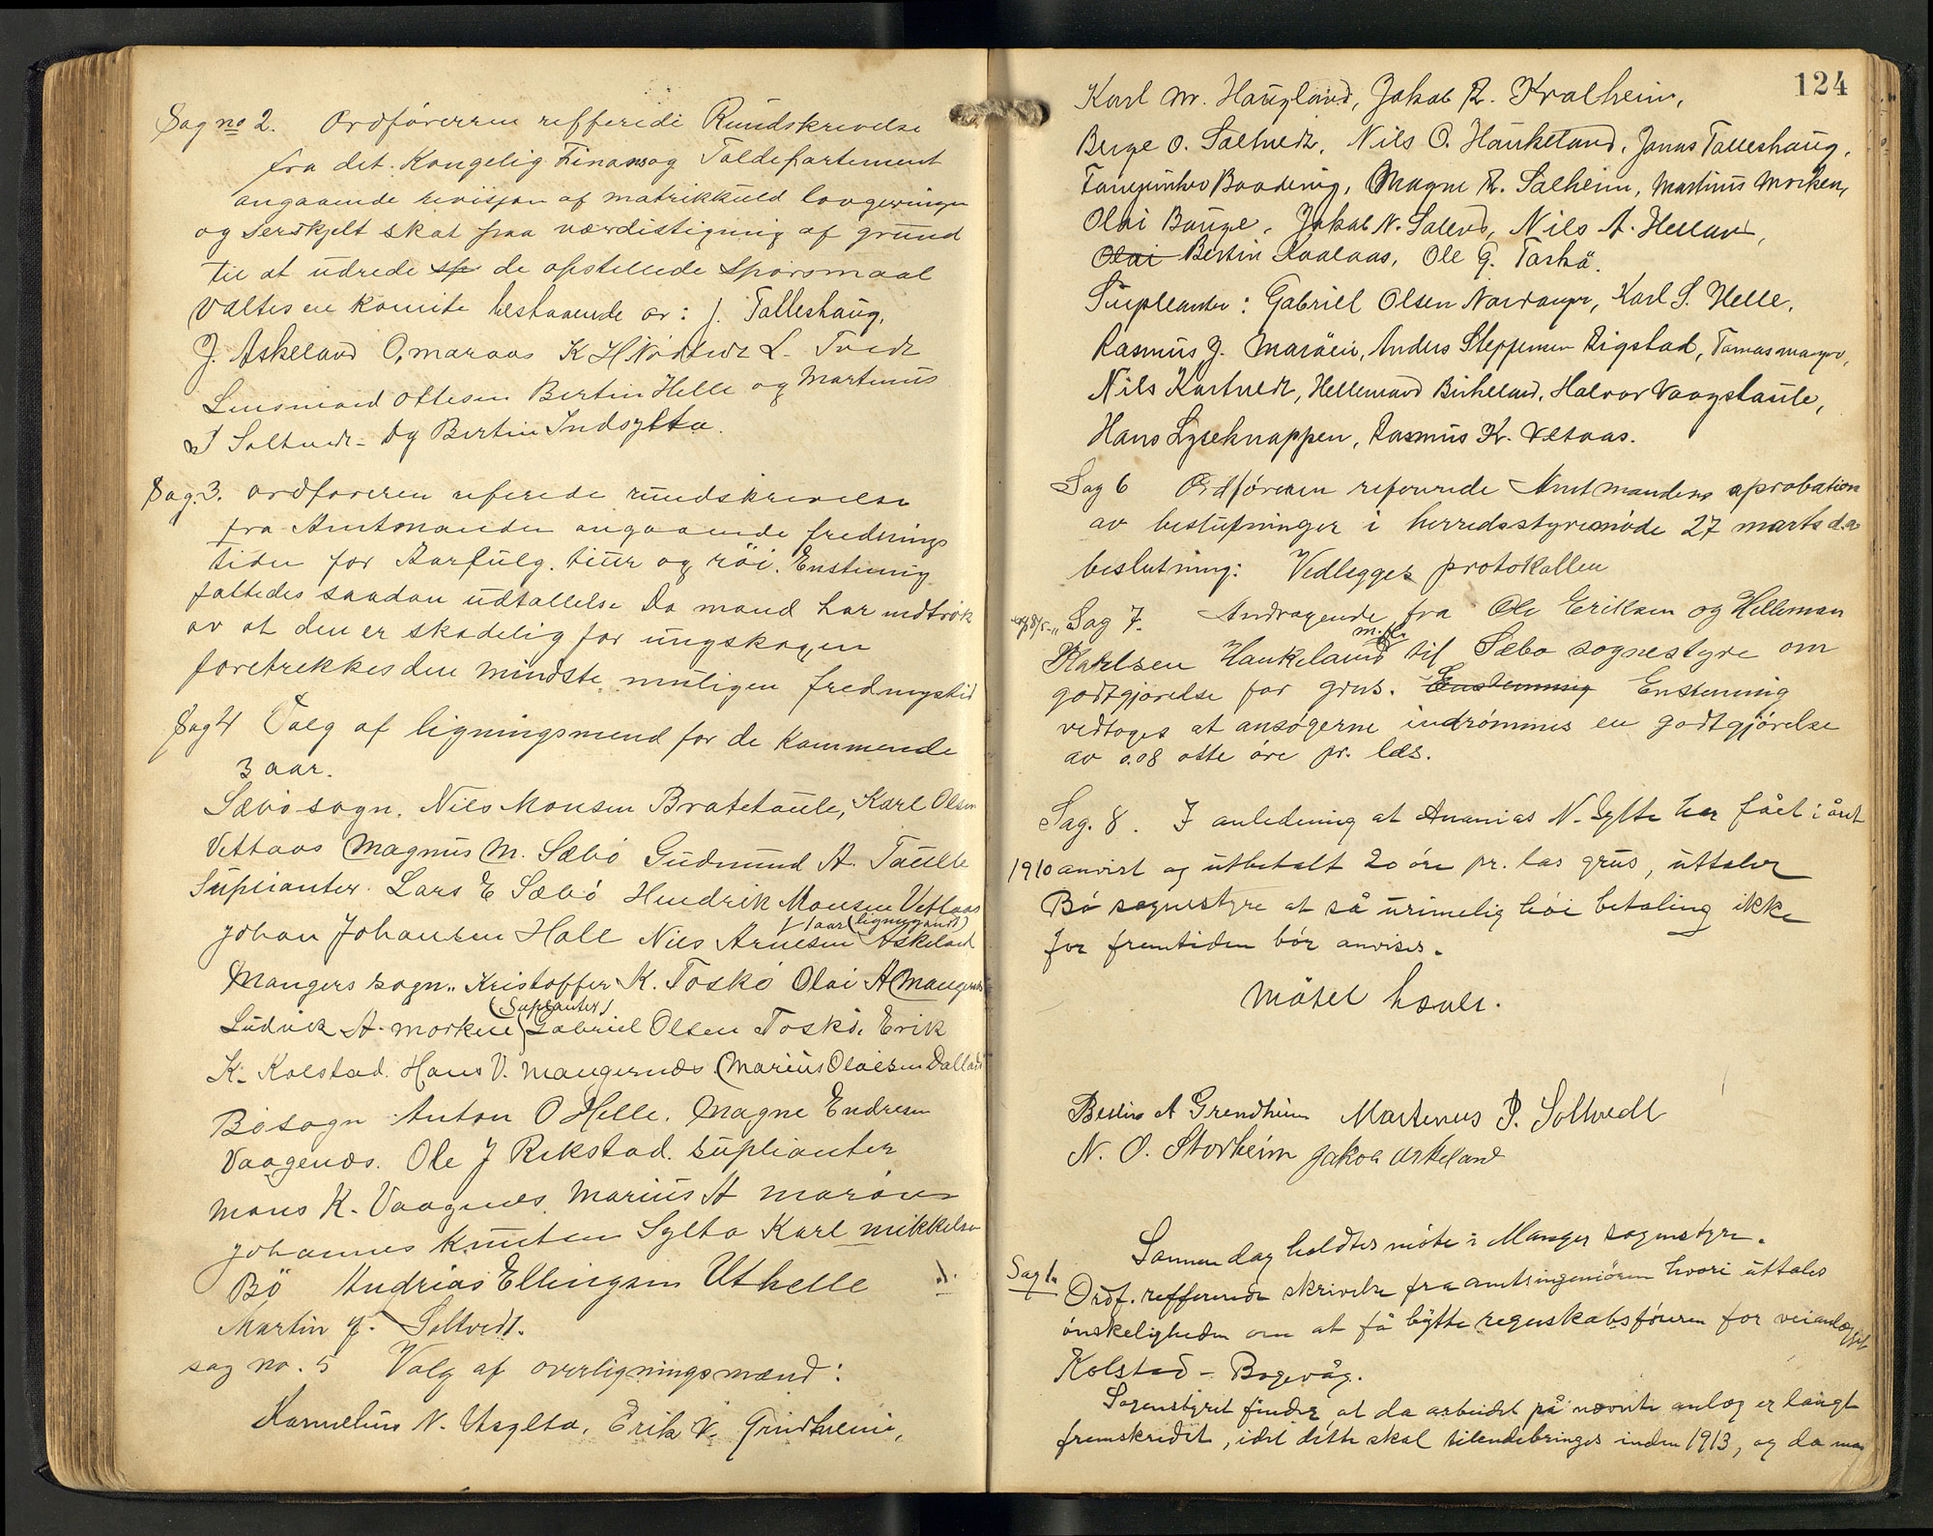 Sag no 2. Ordförerren refferedi Rundskrivelse
fra det. Kongelig Finans og Toldepartement
angaaende revisjon af matrikkuld lovgevningen
og Serskjelt skat paa værdistigning af grund
til at udrede sp de opstellede Sporsmaal
Valtes en komite bestaaende av: J. Talleshaug,
J. Askeland O, maraas K H L. Tvedt
Ottesen Bertin Helle og Martinus
P Soltvedt - Og Bertin Indsylta.
Sag. 3. Ordføreren referede rundskrivelse
fra Amtmanden angaaende frednings
tiden for Aarfulg. tiur og röi. Enstimig
faltedes saadan udtallelse Da mand har indtrök
av at den er skadelig for ungskogen
foretrekkes den mindste muligen fredningstid
Sag 4 Valg af ligningsmend for de kommende
3 aar.
Sæbö sogn. Nils Monsen Bratetaule, Karl Olsen
Vettaas Magnus M. Sæbö Gudmund A. Taule
Suplianter. Lars E Sæbö Hendrik Monsen Vettaas
Johan Johansen Hole Nils Arnesen Askeland
Mangers sogn. Kristoffer K. Toskö Olai A Mangersnes
(Suplianter)
Ludvik A. morken Gabriel Olsen Toskö, Erik
K. Kolstad. Hans V. mangersnæs. Marius Olaisen Dalland
Bö sogn Anton O Helle. Magne Endresen
Vaagenæs. Ole J Rikstad. suplianter
Mons K. Vaagnes. Marius A maröen
Johannes Knutsen Sylta Karl mikkelsen
Bö Andrias Ellingsen Uthelle
Martin J. Soltvedt.
sag no. 5 Valg af overligningsmænd:
Kornelius N. Utsylta, Erik V. Grindheim,
124
Karl M. Haugland, Jakob R. Kvalheim,
Berge O. Soltvedt, Nils O. Haukeland, Jonas Talleshaug,
Boadering, Magne R. Sæheim, Martinus Morken,
Olai Bauge, Jakob N. Nils A. Helland,
Olai Bertin Kaalaas, Ole G. Toskö.
Supleanter: Gabriel Olsen Nordanger, Karl S. Helle,
Rasmus J. Maröen, Anders Steffensen Rigstad, Tomas
Nils Kartvedt, Hellemand Birkeland, Halvor Vaagstaule,
Hans Lyseknappen, Rasmus Kr. Vetaas.
Sag 6 Ordförerren refererede Amtmandens aprobation
av beslutninger i herredsstyremöde 27 marts d.a
beslutning: Vedlegges protokollen
Sag 7. Andragende fra Ole Eriksen og Helleman
m.fl.
Haukeland til Sæbo sognestyre om
godtgjörelse for grus. Enstemmig Enstemmig
vedtoges at ansögerne indrömmes en godtgjörelse
av 0.08 otte öre pr. læs.
Sag. 8. I anledning at Ananias N. Sylte har fået i året
1910 anvist og utbetalt 20 öre pr. las grus, uttaler
Bö sognestyre at så urimelig höi betaling ikke
for fremtiden bör anvises.
Mötet hævet.
Bertin A Grendheim Martinus P. Soltvedt
N. O. Storheim Jakob Askeland
Sammen dag holdtes möte i Manger sognestyre.
Sag 1.
Ordf. refererede skrivelse fra amtsingeniören hvori uttales
önskeligheden om at få bytte regnskabsföreren for veianlægget
Kolstad - Bogevåg.
Sognestyret finder, at da arbeidet på nævnte anlæg er langt
fremskredet, idet dette skal tilendebringes inden 1913, og da man